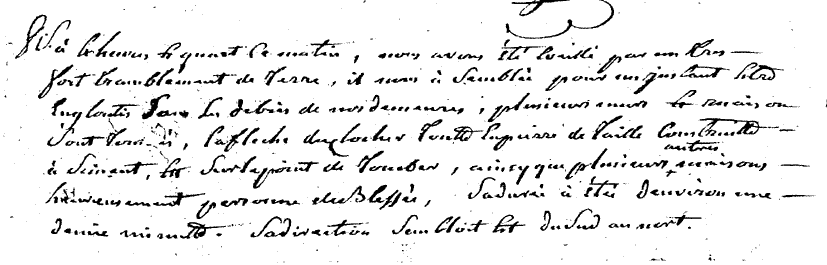 à 4 heures et quart ce matin, nous avons été éveillé par un tres
fort tremblement de Terre, il nous à semblée pour un instant être
Engloutis sous les debris de nos demeures, plusieurs murs et maison
sont , la fleche du clocher toutte en pierre de Taille Construitte
à , est sur le point de tomber, ainsy que plusieurs autres maisons
heureusement personne de Blessée, sa durée à étée d'environ une
demie minutte. sa direction sembloit Est du sud au nort.